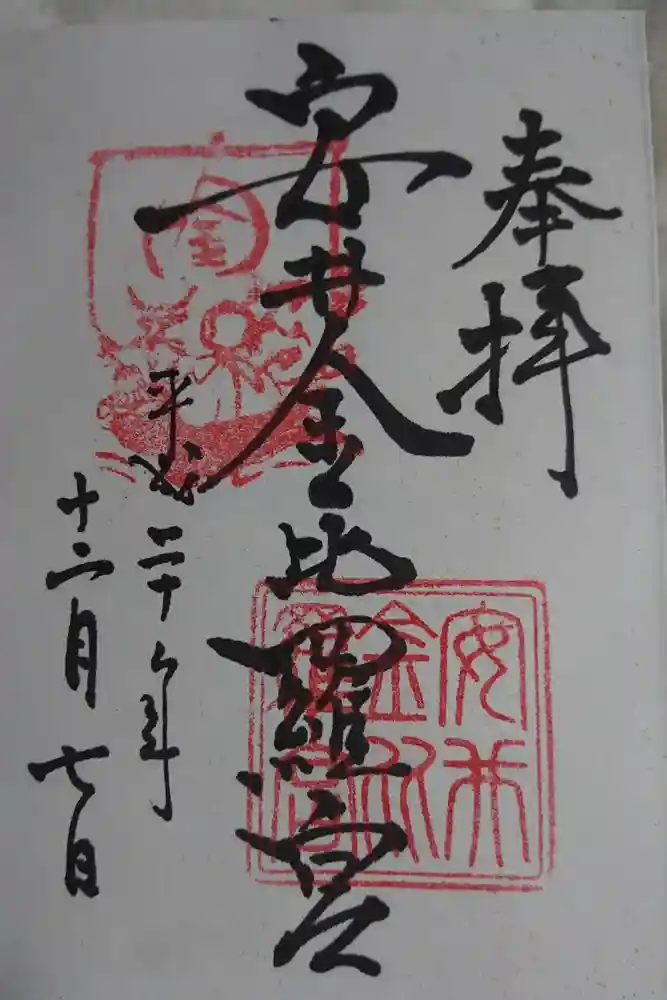 奉拝
安井金比羅宮
平成二十六年
十二月七日
金
安井
金比
羅宮